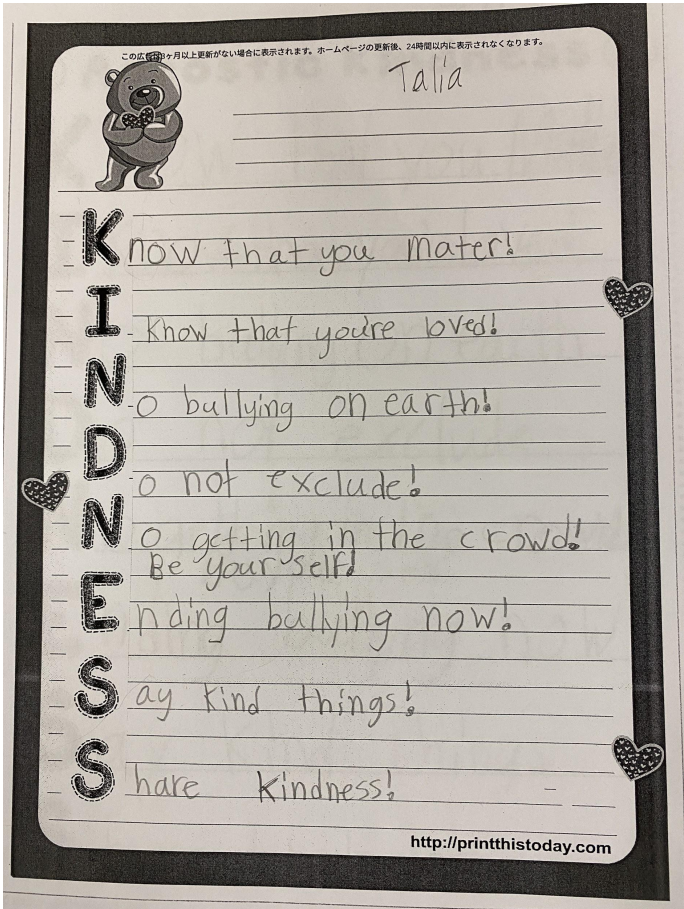 この広告は3ヶ月以上更新がない場合に表示されます。ホームページの更新後、24時間以内に表示されなくなります。
Talia
Know that you mater!
I know that you're loved!
No bullying on earth!
Do not exclude!
No getting in the crowd!
Be your self!
Ending bullying now!
Say kind things!
Share kindness!
http://printthistoday.com